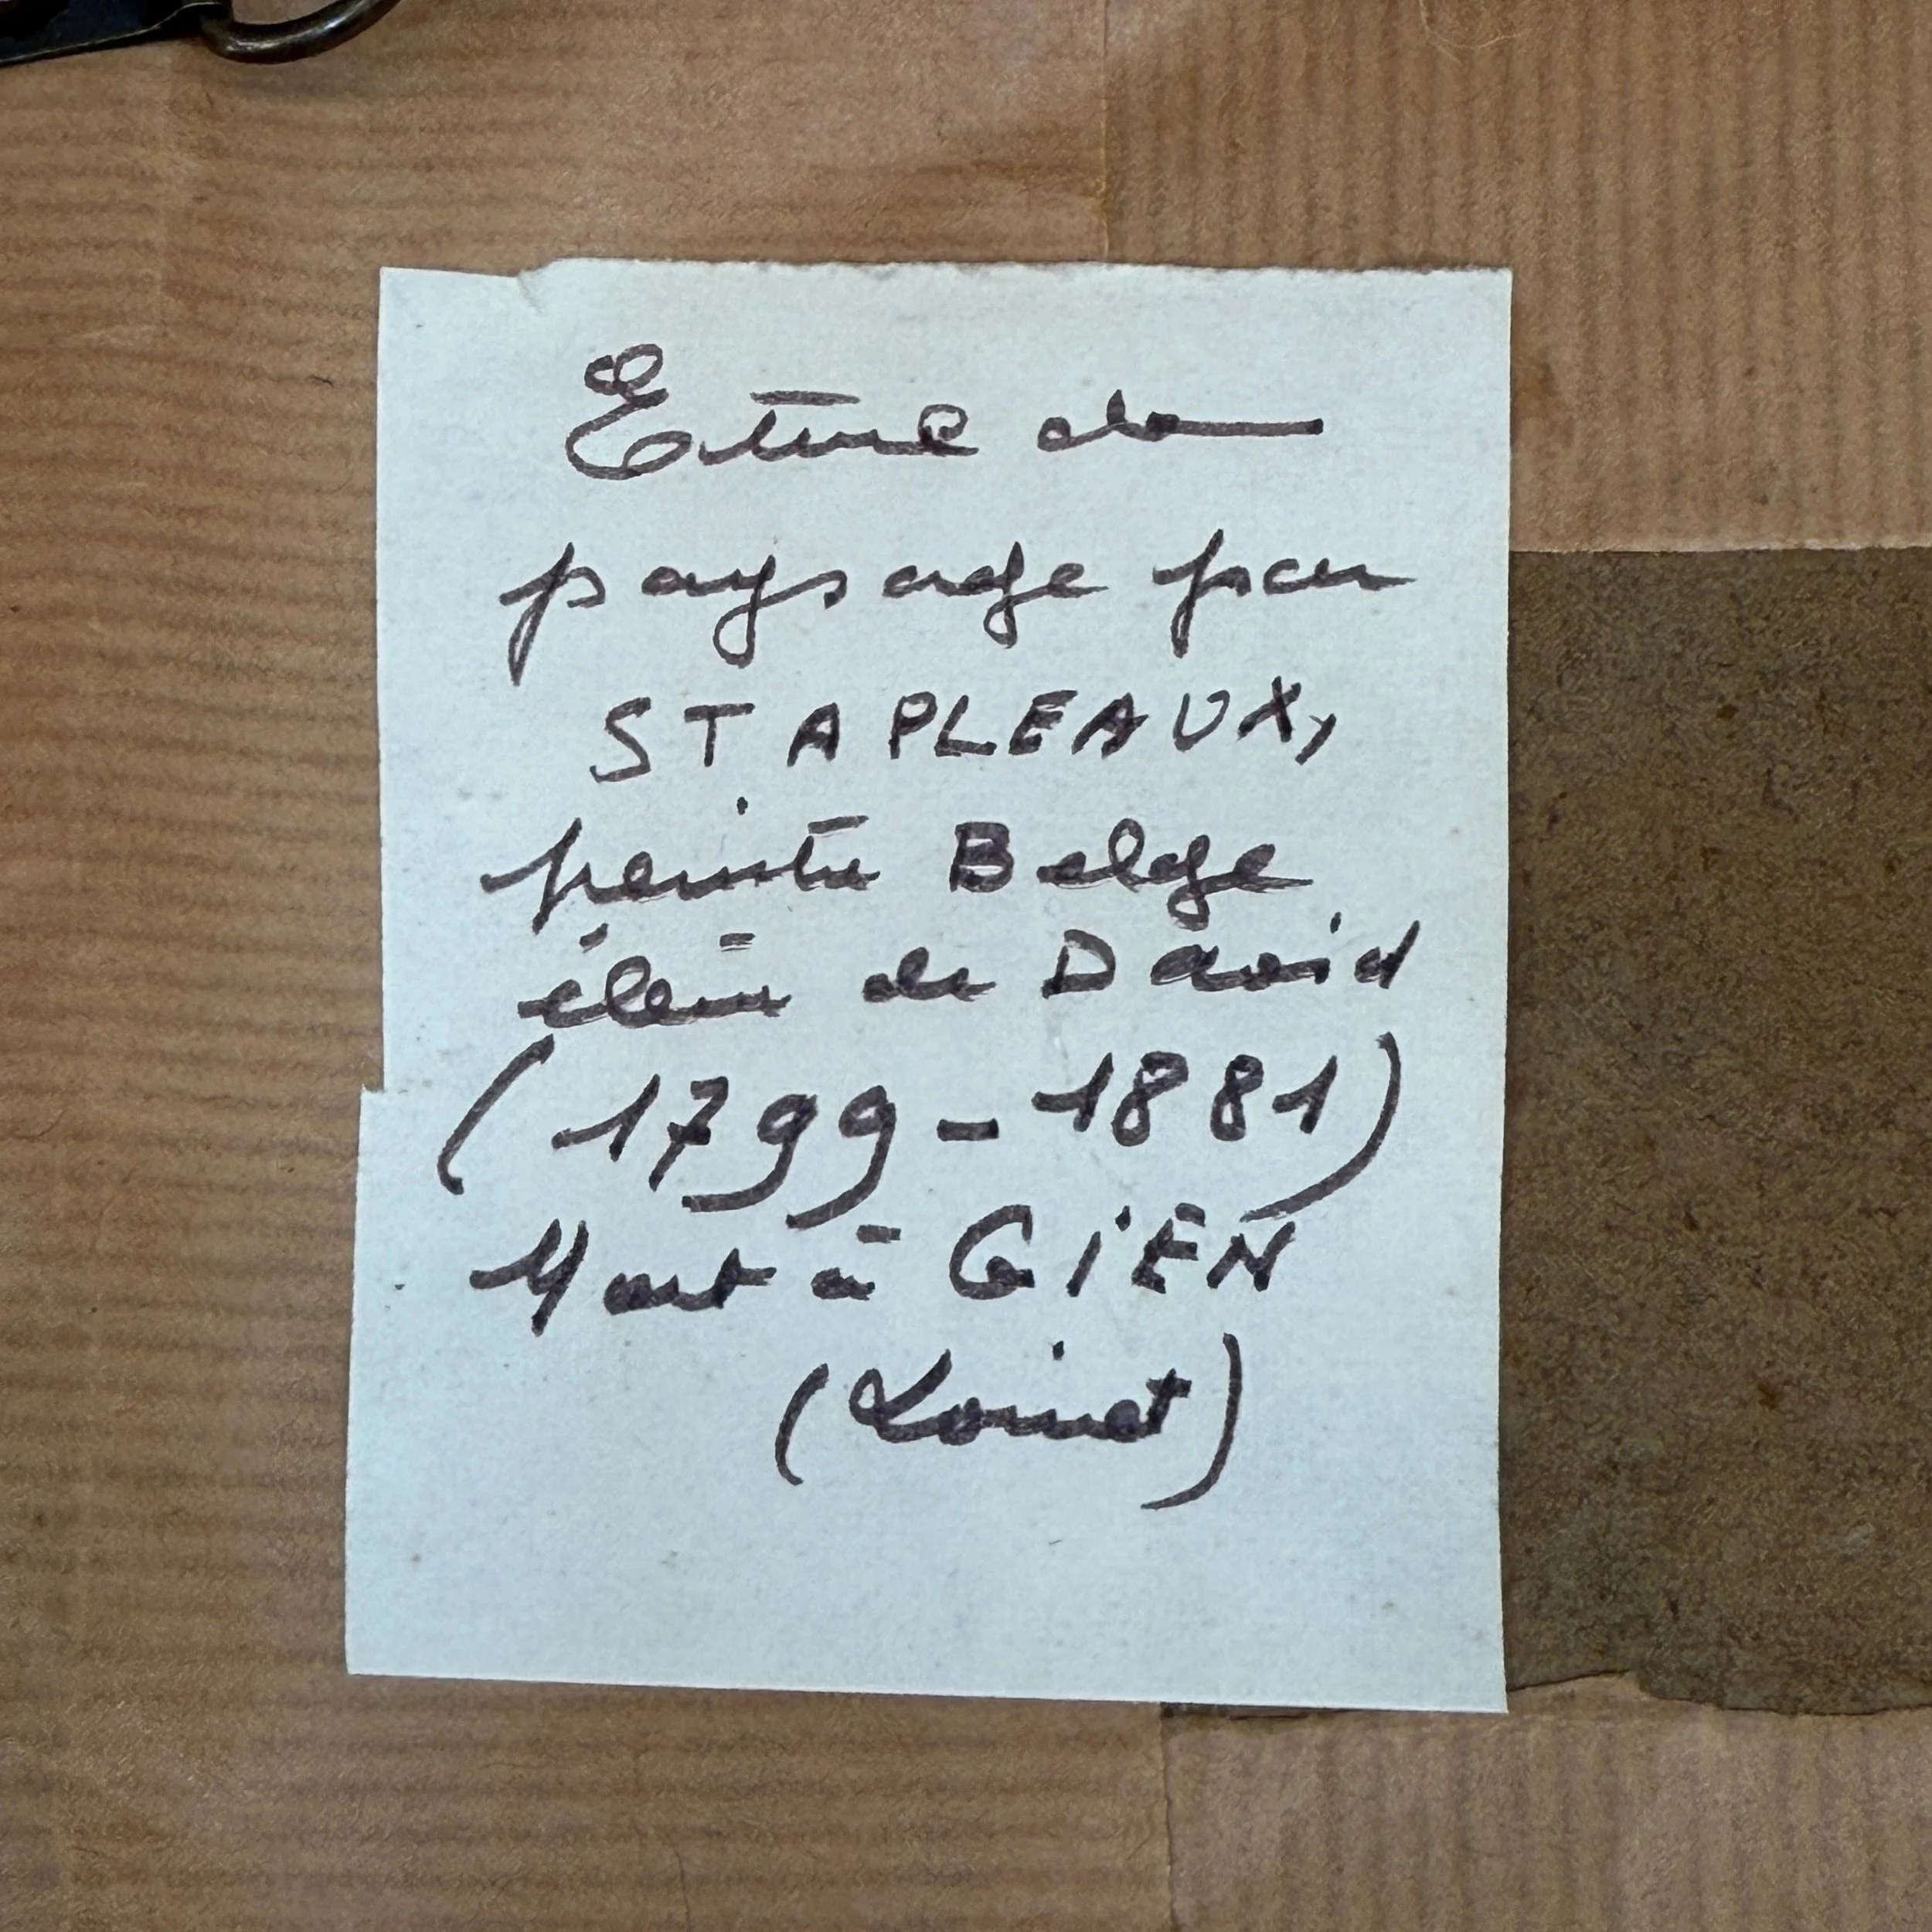 Etude de
paysage par
STAPLEAUX,
peintre Belge
élève de David
(1799-1881)
Mort à GiEN
(Loiret)